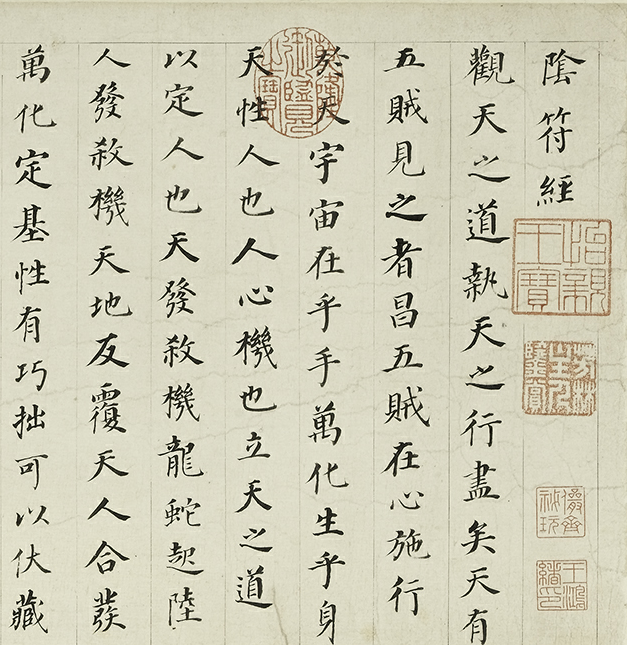 陰符經
觀天之道執天之行盡矣天有
五賊見之者昌五賊在心施行
於天宇宙在乎手萬化生乎身
天性人也人心機也立天之道
以定人也天發殺機龍蛇起陸
人發殺機天地反覆天人合發
萬化定基性有巧拙可以伏藏
怡親王寶
儼齋秘玩
王鴻緒印
乾隆御覽之寶